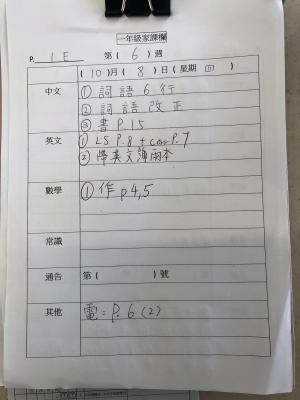 一年級家課欄
P. 1E 第 ( 6 ) 週
( 10 ) 月 ( 8 ) 日 ( 星期 四 )
中文 ① 詞語6行
② 詞語改正
③ 書P.15
英文 ① LS P.8 + corr P.7
② 帶英文簿兩本
數學 ① 作 p4,5
常識
通告 第 ( ) 號
其他 電: P.6 (2)